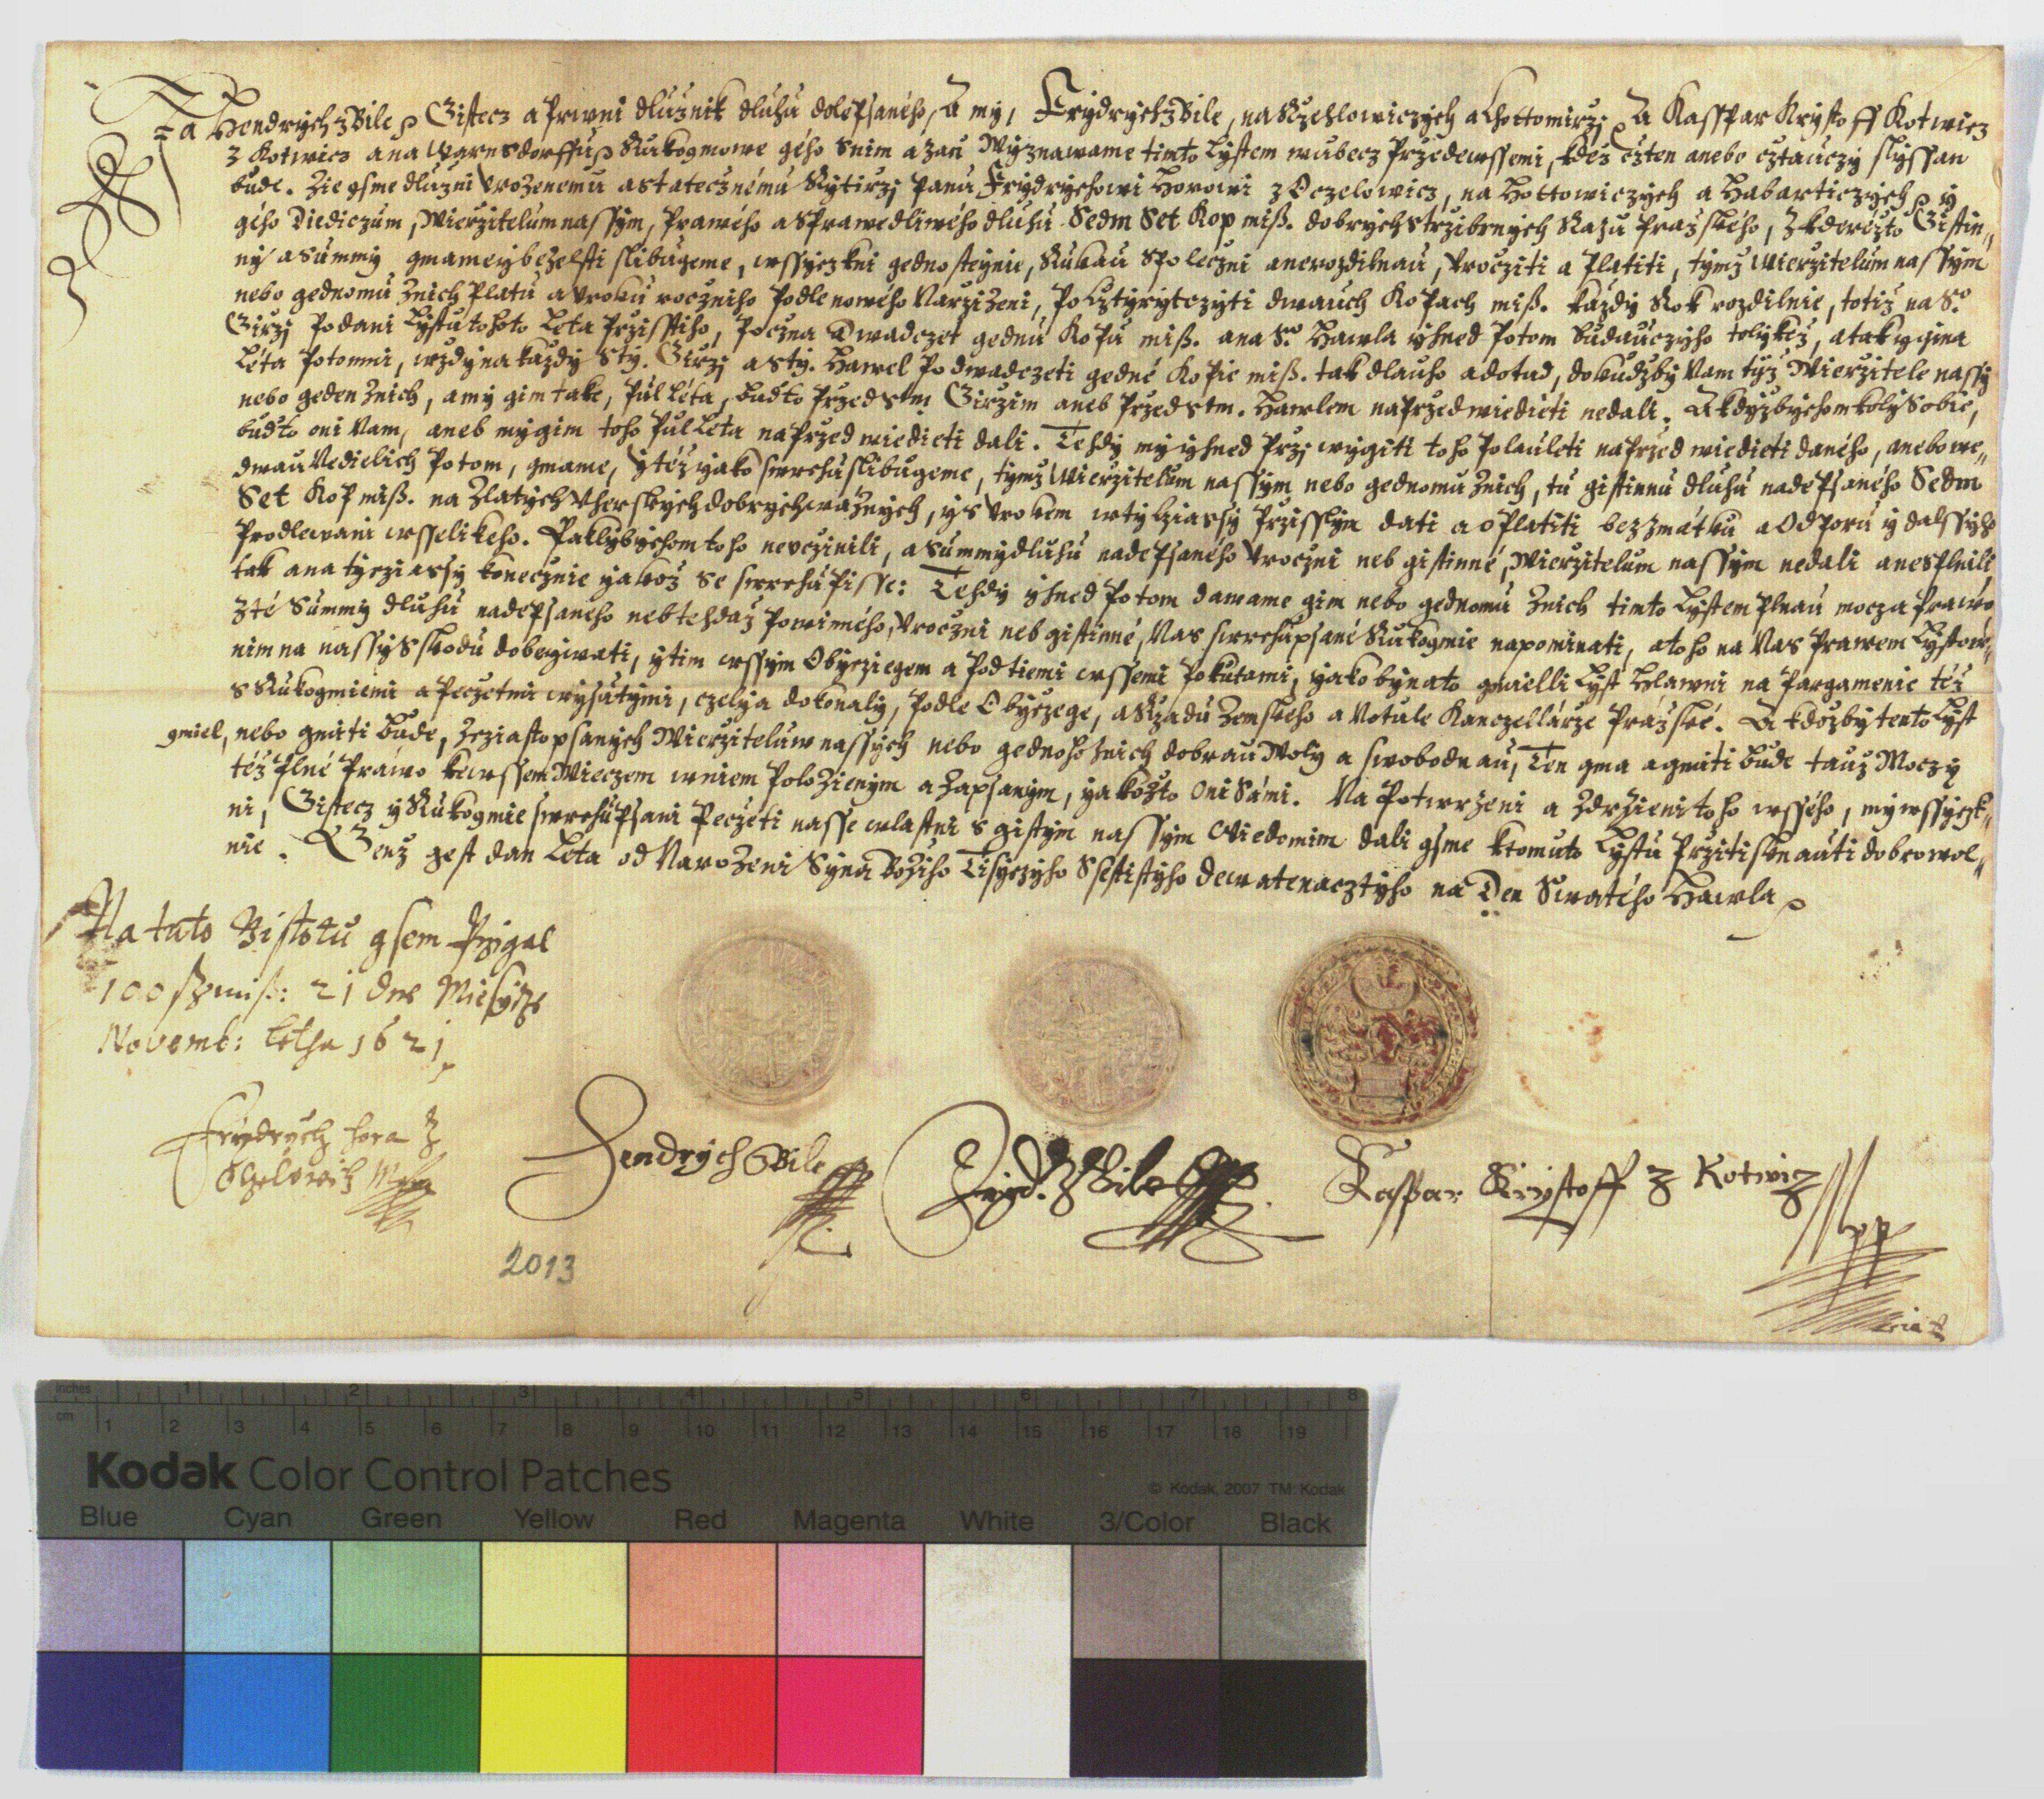 Ja Hendrych z Bile Gistecz a Prwni dlužnik dluhu dolepsaného, A my, Frydrych z Bile, na Rzehlowiczych a Lhottomirzj A Kasspar Krystoff Kotwicz
z Kotwicz a na Warnsdorffu Rukogmowe gého s nim a zaň Wyznawame timto Lystem wubecz przedewssemi, kdež čzten anebo cztauczy slyssan
bude. Zie gsme dlužni Urozenemu a statecznému Rytirzj Panu Frydrychowi Horowi z Oczelowicz, na Hottowiczych a Habarticzych y
gého Diediczum, Wierzitelum nassym, prawého a sprawedliwého dluhu Sedm Set Kop miß. dobrych strzibrnych Razu Pražského, z kderéžto Gistin„
ny a summy gmamey bezelsti slibugeme, wssyczkni gednosteynie, Rukau spoleczni a nerozdilnau, Urocziti a Platiti, tymž Wierzitelum nassym
nebo gednomu z nich Platu a Uroku roczniho podle nowého Narzizeni, po Cztyrytczyti dwauch Kopach miß. každy Rok rozdilnie, totiž na So.
Girzj po dani Lystu tohoto Leta przisstiho, poczna Dwadczet gednu Kopu miß. a na So. Hawla yhned potom budauczyho tolykéž, a tak y gina
Léta potomni, wždy na každy Sty. Girzj a Sty. Hawel po dwadczeti gedné Kopie miß. tak dlauho a dotud, dokudžby Nam tyž Wierzitele nassy
nebo geden z nich, a my gim take, půl Léta, budto przed Stm Girzim aneb przed Stm. Hawlem naprzed wiedieti nedali. A kdyžbychom koly sobie,
budto oni Nam, aneb my gim toho půl Léta naprzed wiedieti dali. Tehdy my yhned przj wygiti toho polauleti naprzed wiedieti daného, anebo we„
dwau Nedielich potom, gmame, y též yako swrchu slibugeme, tymž Wierzitelum nassym nebo gednomu z nich, tu gistinnu dluhu nadepsaného Sedm
Set Kop miß. na Zlatych Uherskych dobrych wažnych, y s Urokem w ty cziassy przisslym dati a oplatiti bez zmátku a odporu y dalssyho
prodlewani wsselikeho. Paklybychom toho neuczinili, a summy dluhu nadepsaného Uroczni neb gistinné, Wierzitelum nassym nedali a nesplnili
tak a na ty cziassy konecznie yakož se swrchu pisse: Tehdy yhned potom dawame gim nebo gednomu z nich timto Lystem plnau mocz a prawo,
z té Summy dluhu nadepsaneho neb tehdaž powinného, Uroczni neb gistinné, Nas swrchupsané Rukogmie napominati, a toho na Nas prawem Lystow„
nim na nassy sskodu dobegiwati, y tim wssym obycziegem a pod tiemi wssemi pokutami, yako by na to gmielli Lyst Hlawni na pargamenie též
s Rukogmiemi a peczetmi wysutymi, czely a dokonaly, podle obyczege, a Rzadu Zemskeho a Notule Kanczellárze Pražské. A kdožby tento Lyst
gmiel, nebo gmiti bude, zeziastopsanych Wierziteluw nassych nebo gednoho z nich dobrau Woly a swobodnau, Ten gma a gmiti bude tauž Moczy
též plné prawo ke wssem Wieczem w niem poloZienym a zapsanym, yakožto oni Sámi. Na potwrzeni a zdrZieni toho wssého, my wssyczk„
ni, Gistecz y Rukogmie swrchupsani peczeti nasse wlastni s gistym nassym Wiedomim dali gsme k tomuto Lystu przitisknauti dobrowol„
nie. Genž gest dan Leta od Narozeni Syna Božiho Tisyczyho Ssestistyho dewatenacztyho na Den Swatého Hawla
Na tuto Gistotu gsem Przigal
100 ß miß: 21 dne Miesycze
Novemb: Letha 1621
Frydrych hora z
Oczelowicz
Hendrych z Bile
Fryd. z Bile
Kaspar Krystoff z Kotwicz
mpp
2013
inches 1 2 3 4 5 6 7 8
cm 1 2 3 4 5 6 7 8 9 10 11 12 13 14 15 16 17 18 19
Kodak Color Control Patches
© Kodak, 2007 TM: Kodak
Blue Cyan Green Yellow Red Magenta White 3/Color Black